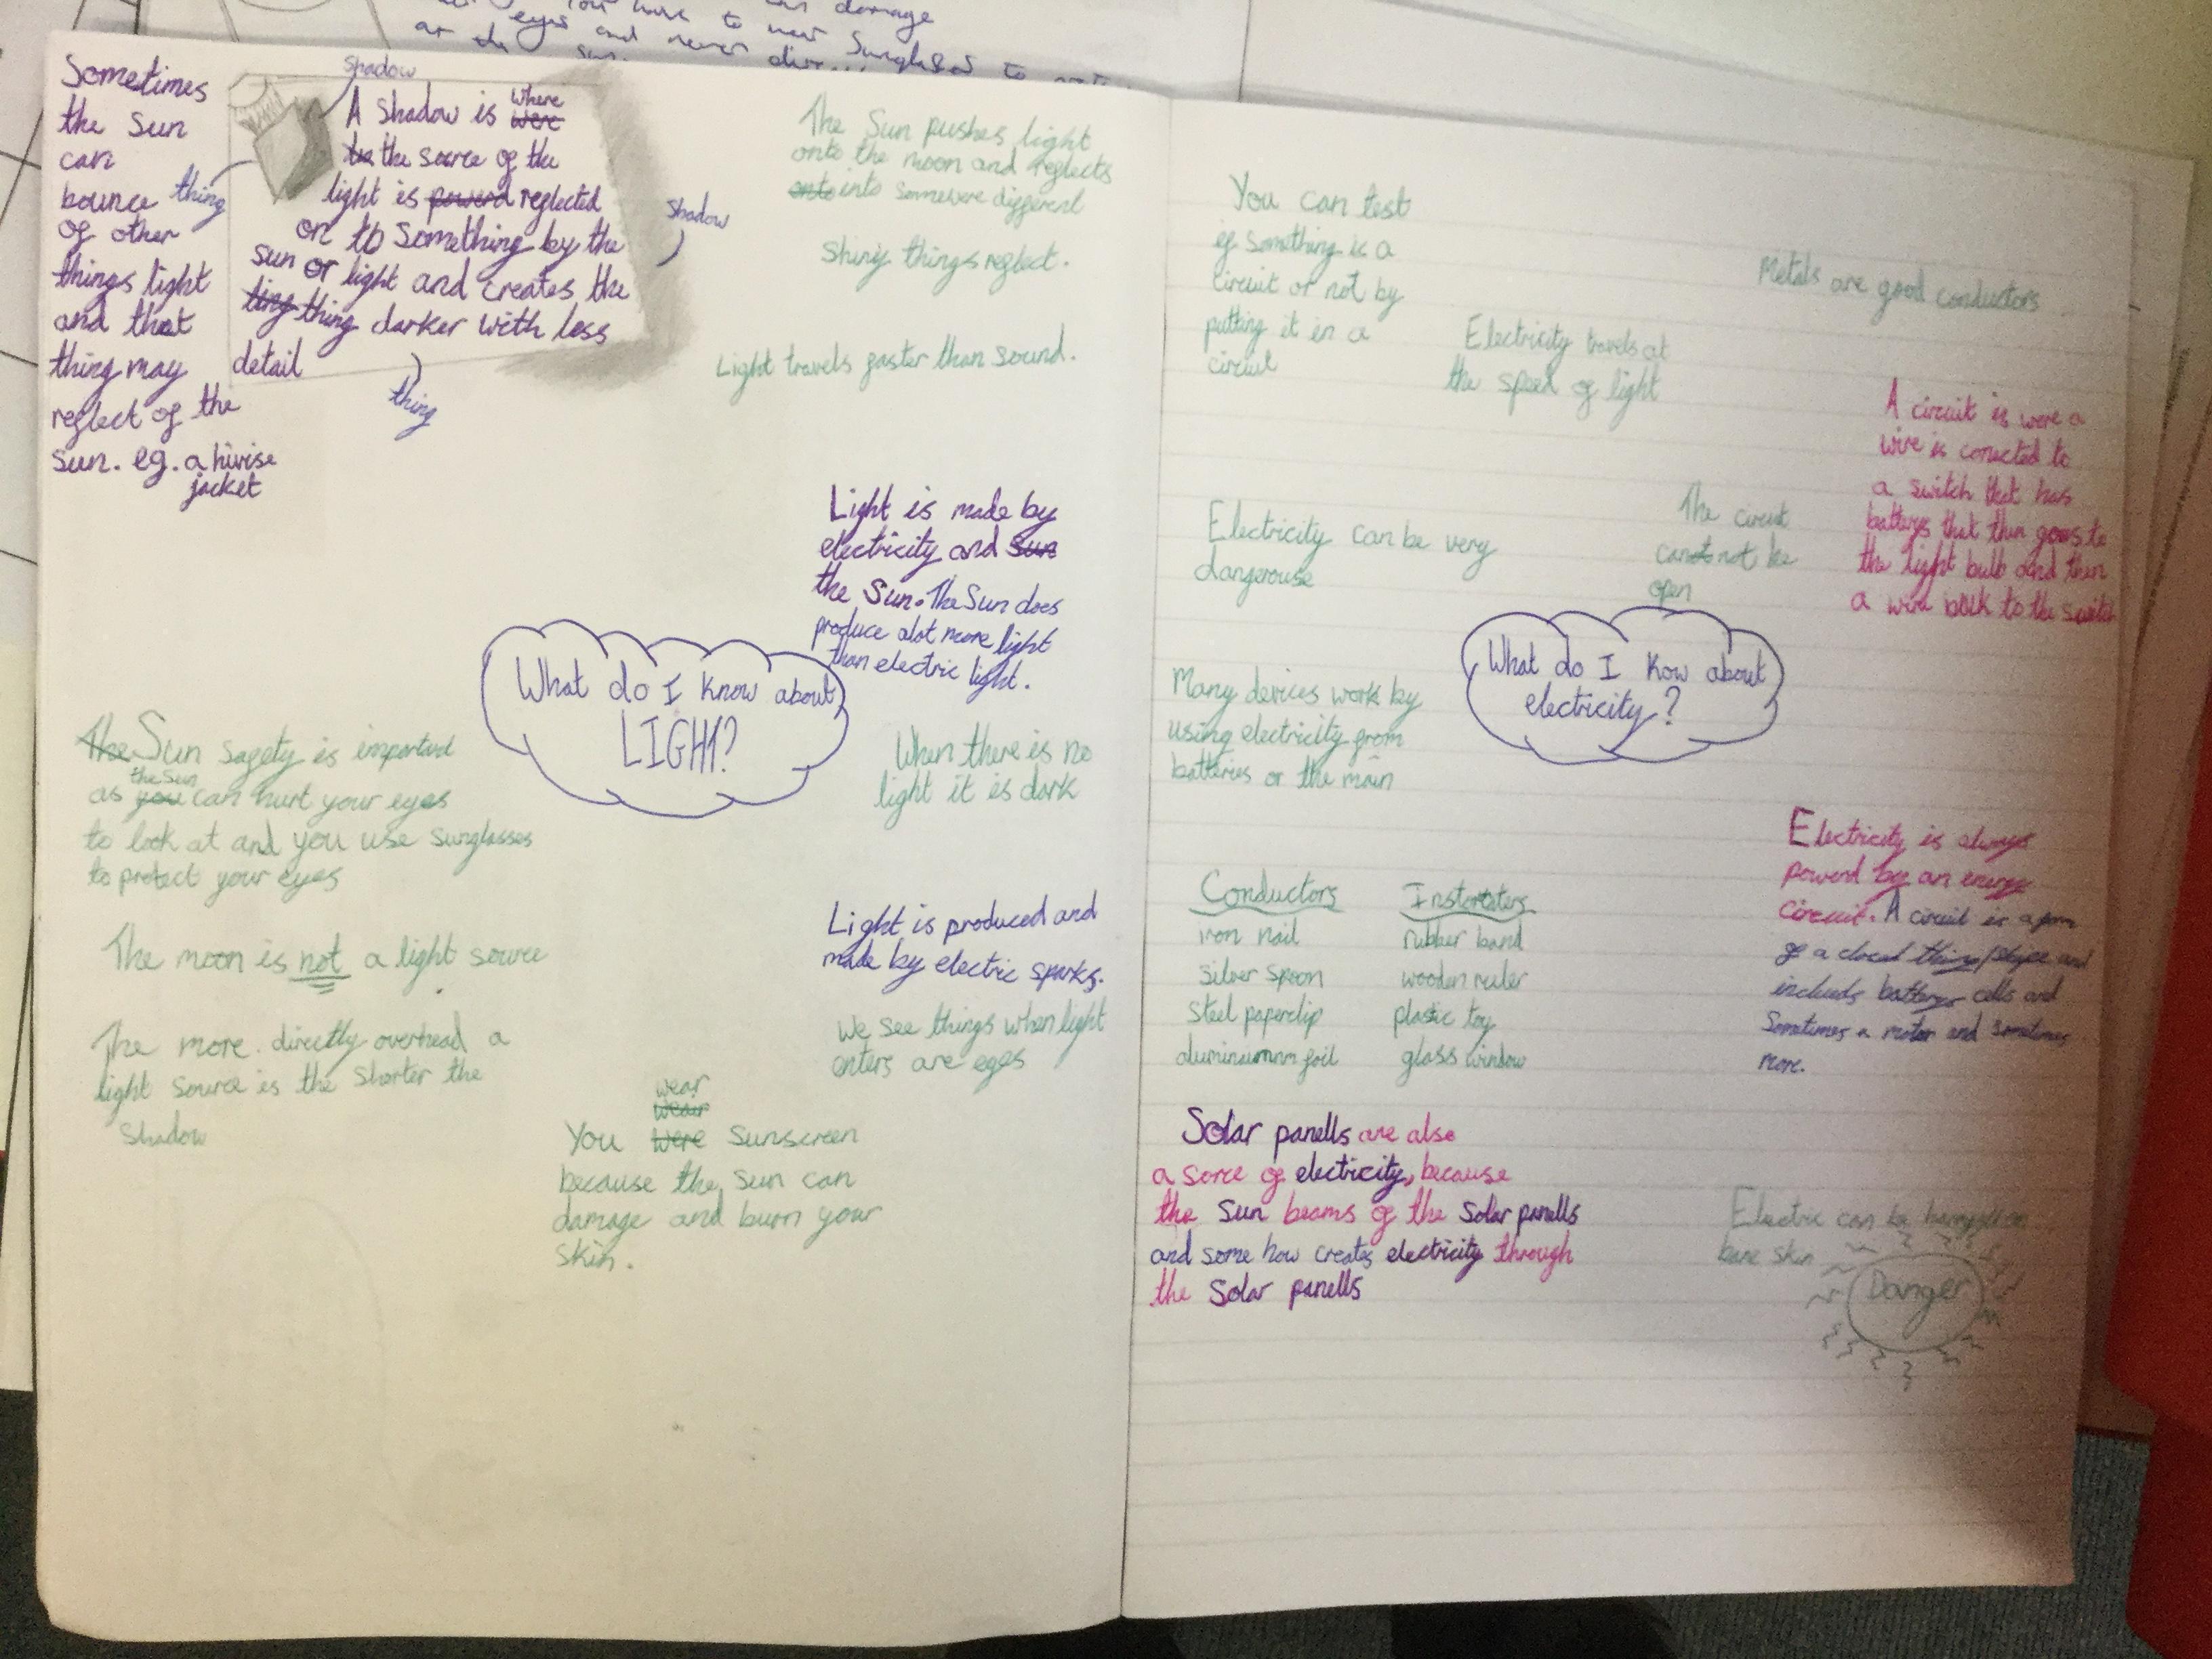 damage
eyes and never
Sometimes
the sun
can
bounce
of other
things light
and that
thing may
reflect of the
sun. eg. a hivise
jacket
Shadow
thing
A Shadow is where were
the sorce of the
light is powerd reflected
on to Something by the
sun or light and creates the
ting thing darker with less
detail
thing
Shadow
The Sun pushes light
onto the moon and reflects
onto into somewere different
Shiny things reflect.
Light travels faster than sound.
Light is made by
electricity and Sun
the Sun. The Sun does
produce alot more light
than electric light.
What do I know about
LIGHT?
The Sun Safety is important
the Sun
as you can hurt your eyes
to look at and you use sunglasses
to protect your eyes
When there is no
light it is dark
The moon is not a light source
Light is produced and
made by electric sparks.
The more directly overhead a
light source is the shorter the
Shadow
We see things when light
enters are eyes
wear
wear
You were sunscreen
because the sun can
damage and burn your
skin.
You can test
if something is a
circuit or not by
putting it in a
circuit
Metals are good conductors
Electricity travels at
the speed of light
A circuit is were a
wire is conected to
a switch that has
batterys that then goes to
the light bulb and then
a wire back to the switch
Electricity can be very
dangerouse
The circuit
can not be
open
What do I Kow about
electricity?
Many devices work by
using electricity from
batteries or the main
Electricity is always
powerd by an energy
circuit. A circuit is a form
of a closed thing/shape and
includs batterys cells and
Sometimes a motor and sometimes
more.
Conductors
iron nail
silver spoon
steel paperclip
foil
rubber band
wooden ruler
plastic toy
glass window
Solar panells are also
a sorce of electricity, because
the Sun beams of the Solar panells
and some how creates electricity through
the Solar panells
Electric can be
bare skin
Danger